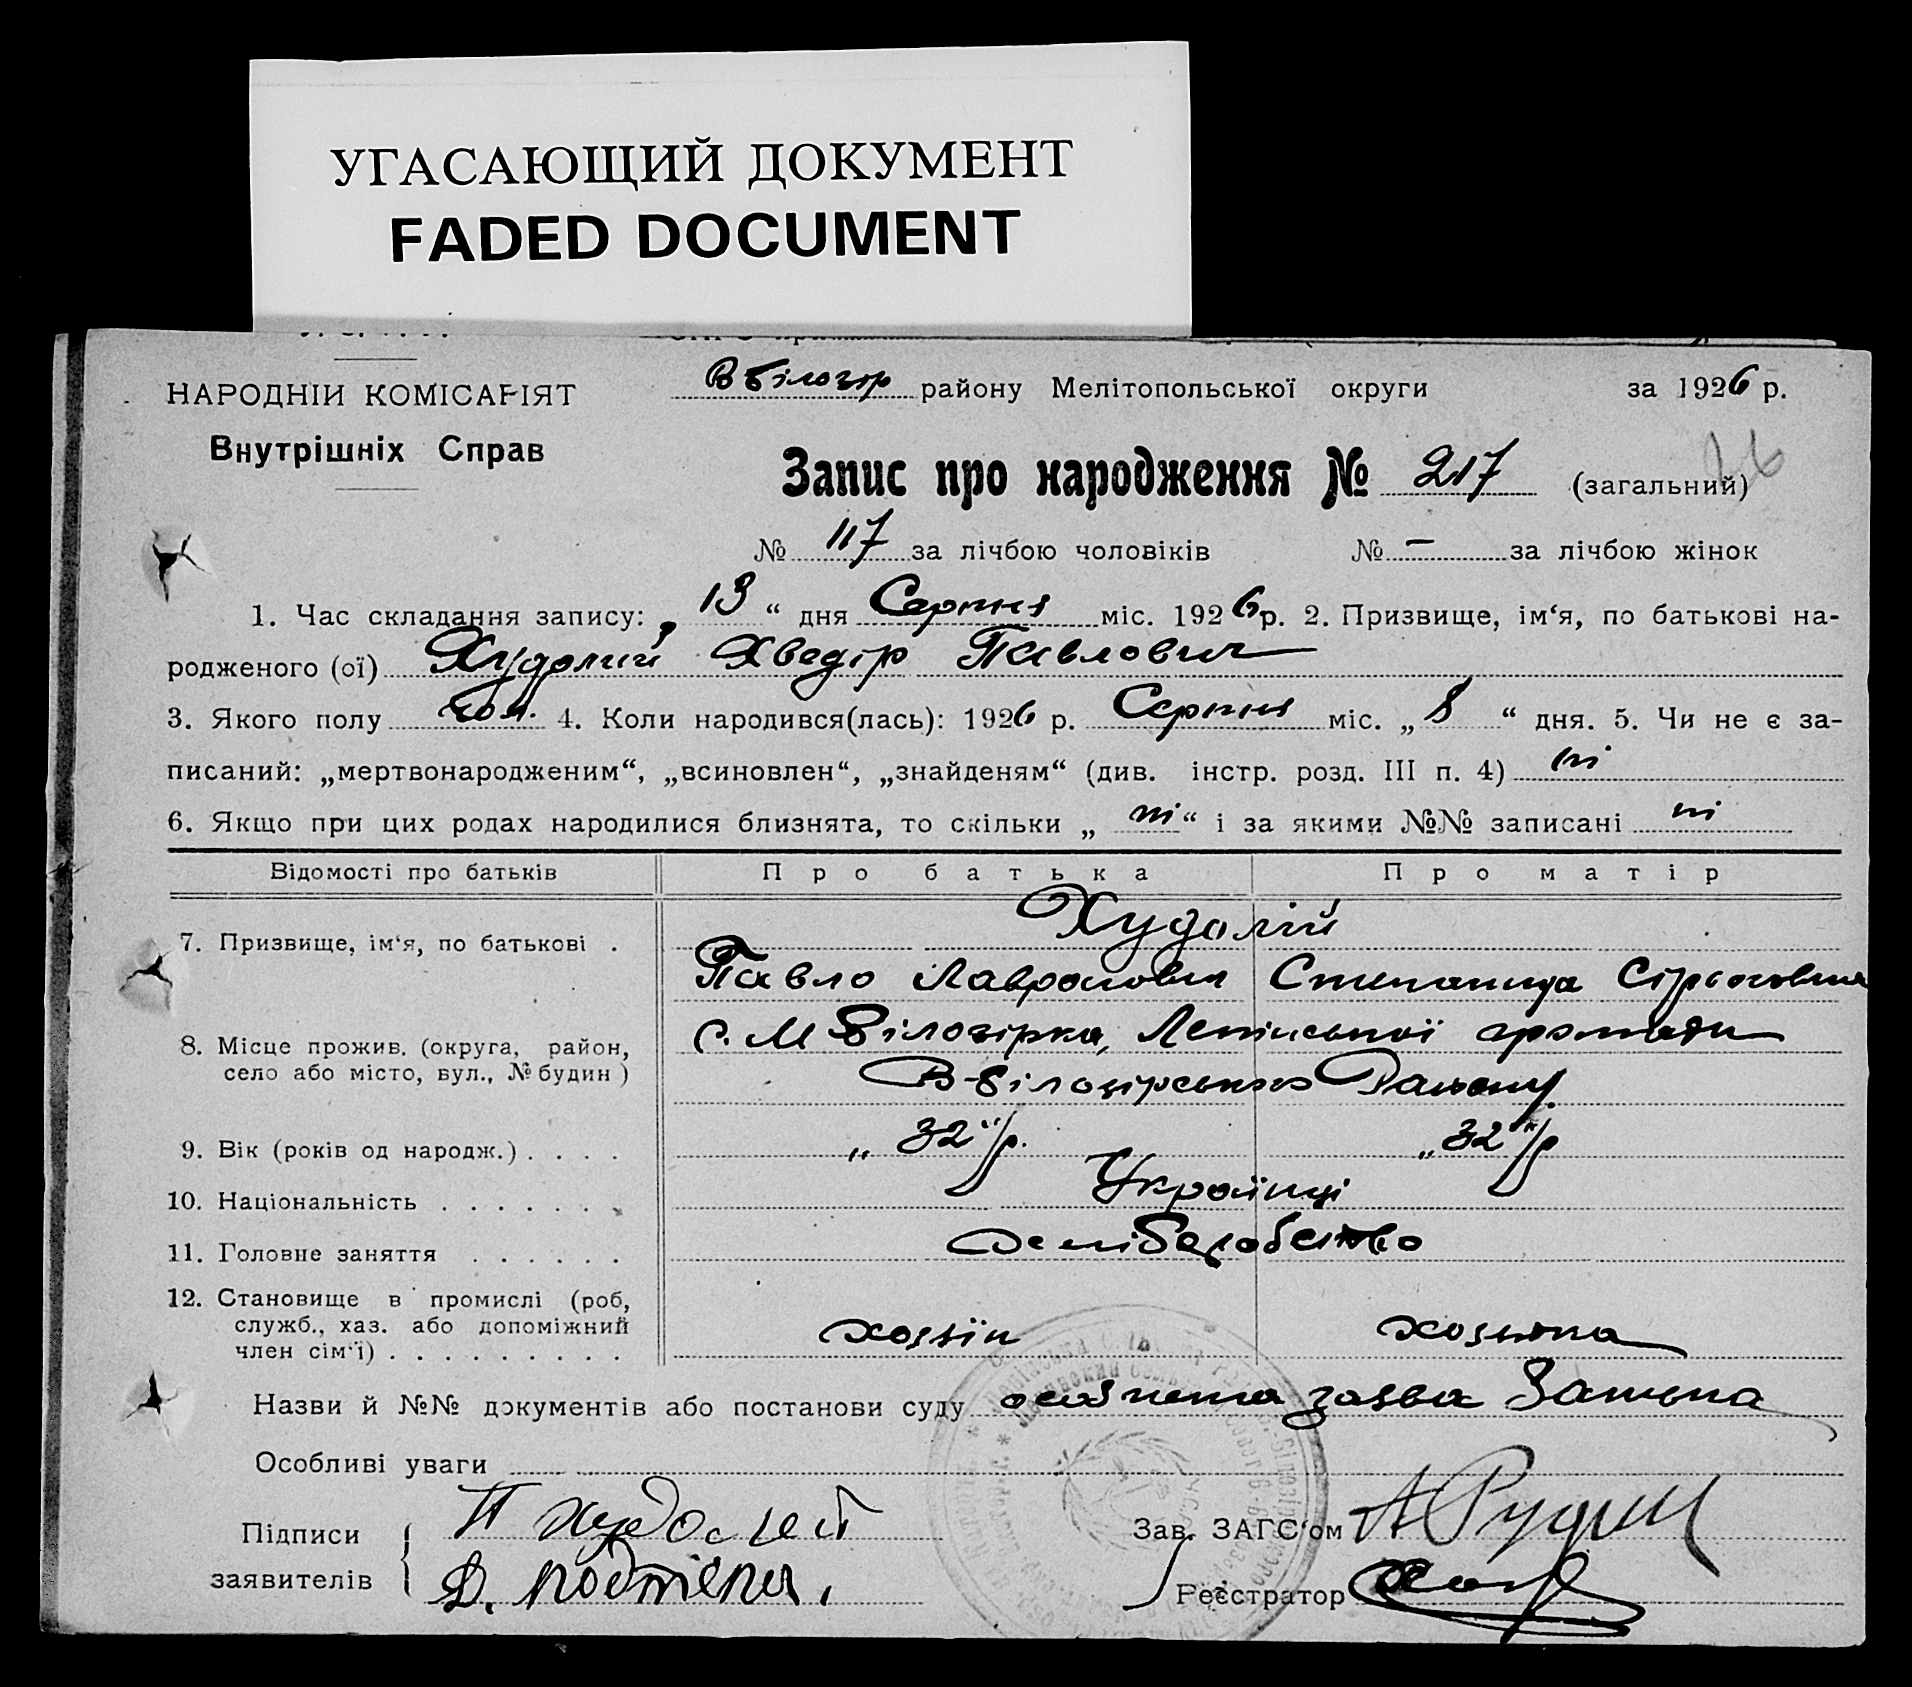 УГАСАЮЩИЙ ДОКУМЕНТ
FADED DOCUMENT
НАРОДНІЙ КОМІСАРІЯТ
Внутрішніх Справ
В Білозір району Мелітопольської округи за 1926 р.
Запис про народження № 217 (загальний)
26
№ 117 за лічбою чоловіків № — за лічбою жінок
1. Час складання запису: „ 13 “ дня Серпня міс. 1926 р. 2. Призвище, ім‘я, по батькові на-
родженого (ої) Худолий Хведір Павлович
3. Якого полу чол. 4. Коли народився(лась): 1926 р. Серпня міс. „ 8 “ дня. 5. Чи не є за-
писаний: „мертвонародженим“, „всиновлен“, „знайденям“ (див. інстр. розд. III п. 4) ні
6. Якщо при цих родах народилися близнята, то скільки „ ні “ і за якими №№ записані ні
Відомості про батьків Про батька Про матір
7. Призвище, ім‘я, по батькові . Худолій
Павло Степанида
8. Місце прожив. (округа, район, село або місто, вул., № будин) с. М Білозірка, Ленінської громади
В-Білозірського Району
9. Вік (років од народж.) . . . . „ 32 “/р. „ 32 “/р
10. Національність . . . . . . . Українці
11. Головне заняття . . . . . .
12. Становище в промислі (роб, служб., хаз. або допоміжний член сім‘ї) . . . . . . . . . хозяїн хозяйка
Назви й №№ документів або постанови суду заява
Особливі уваги
Підписи П Худолей Зав. ЗАГС‘ом
заявителів Реєстратор